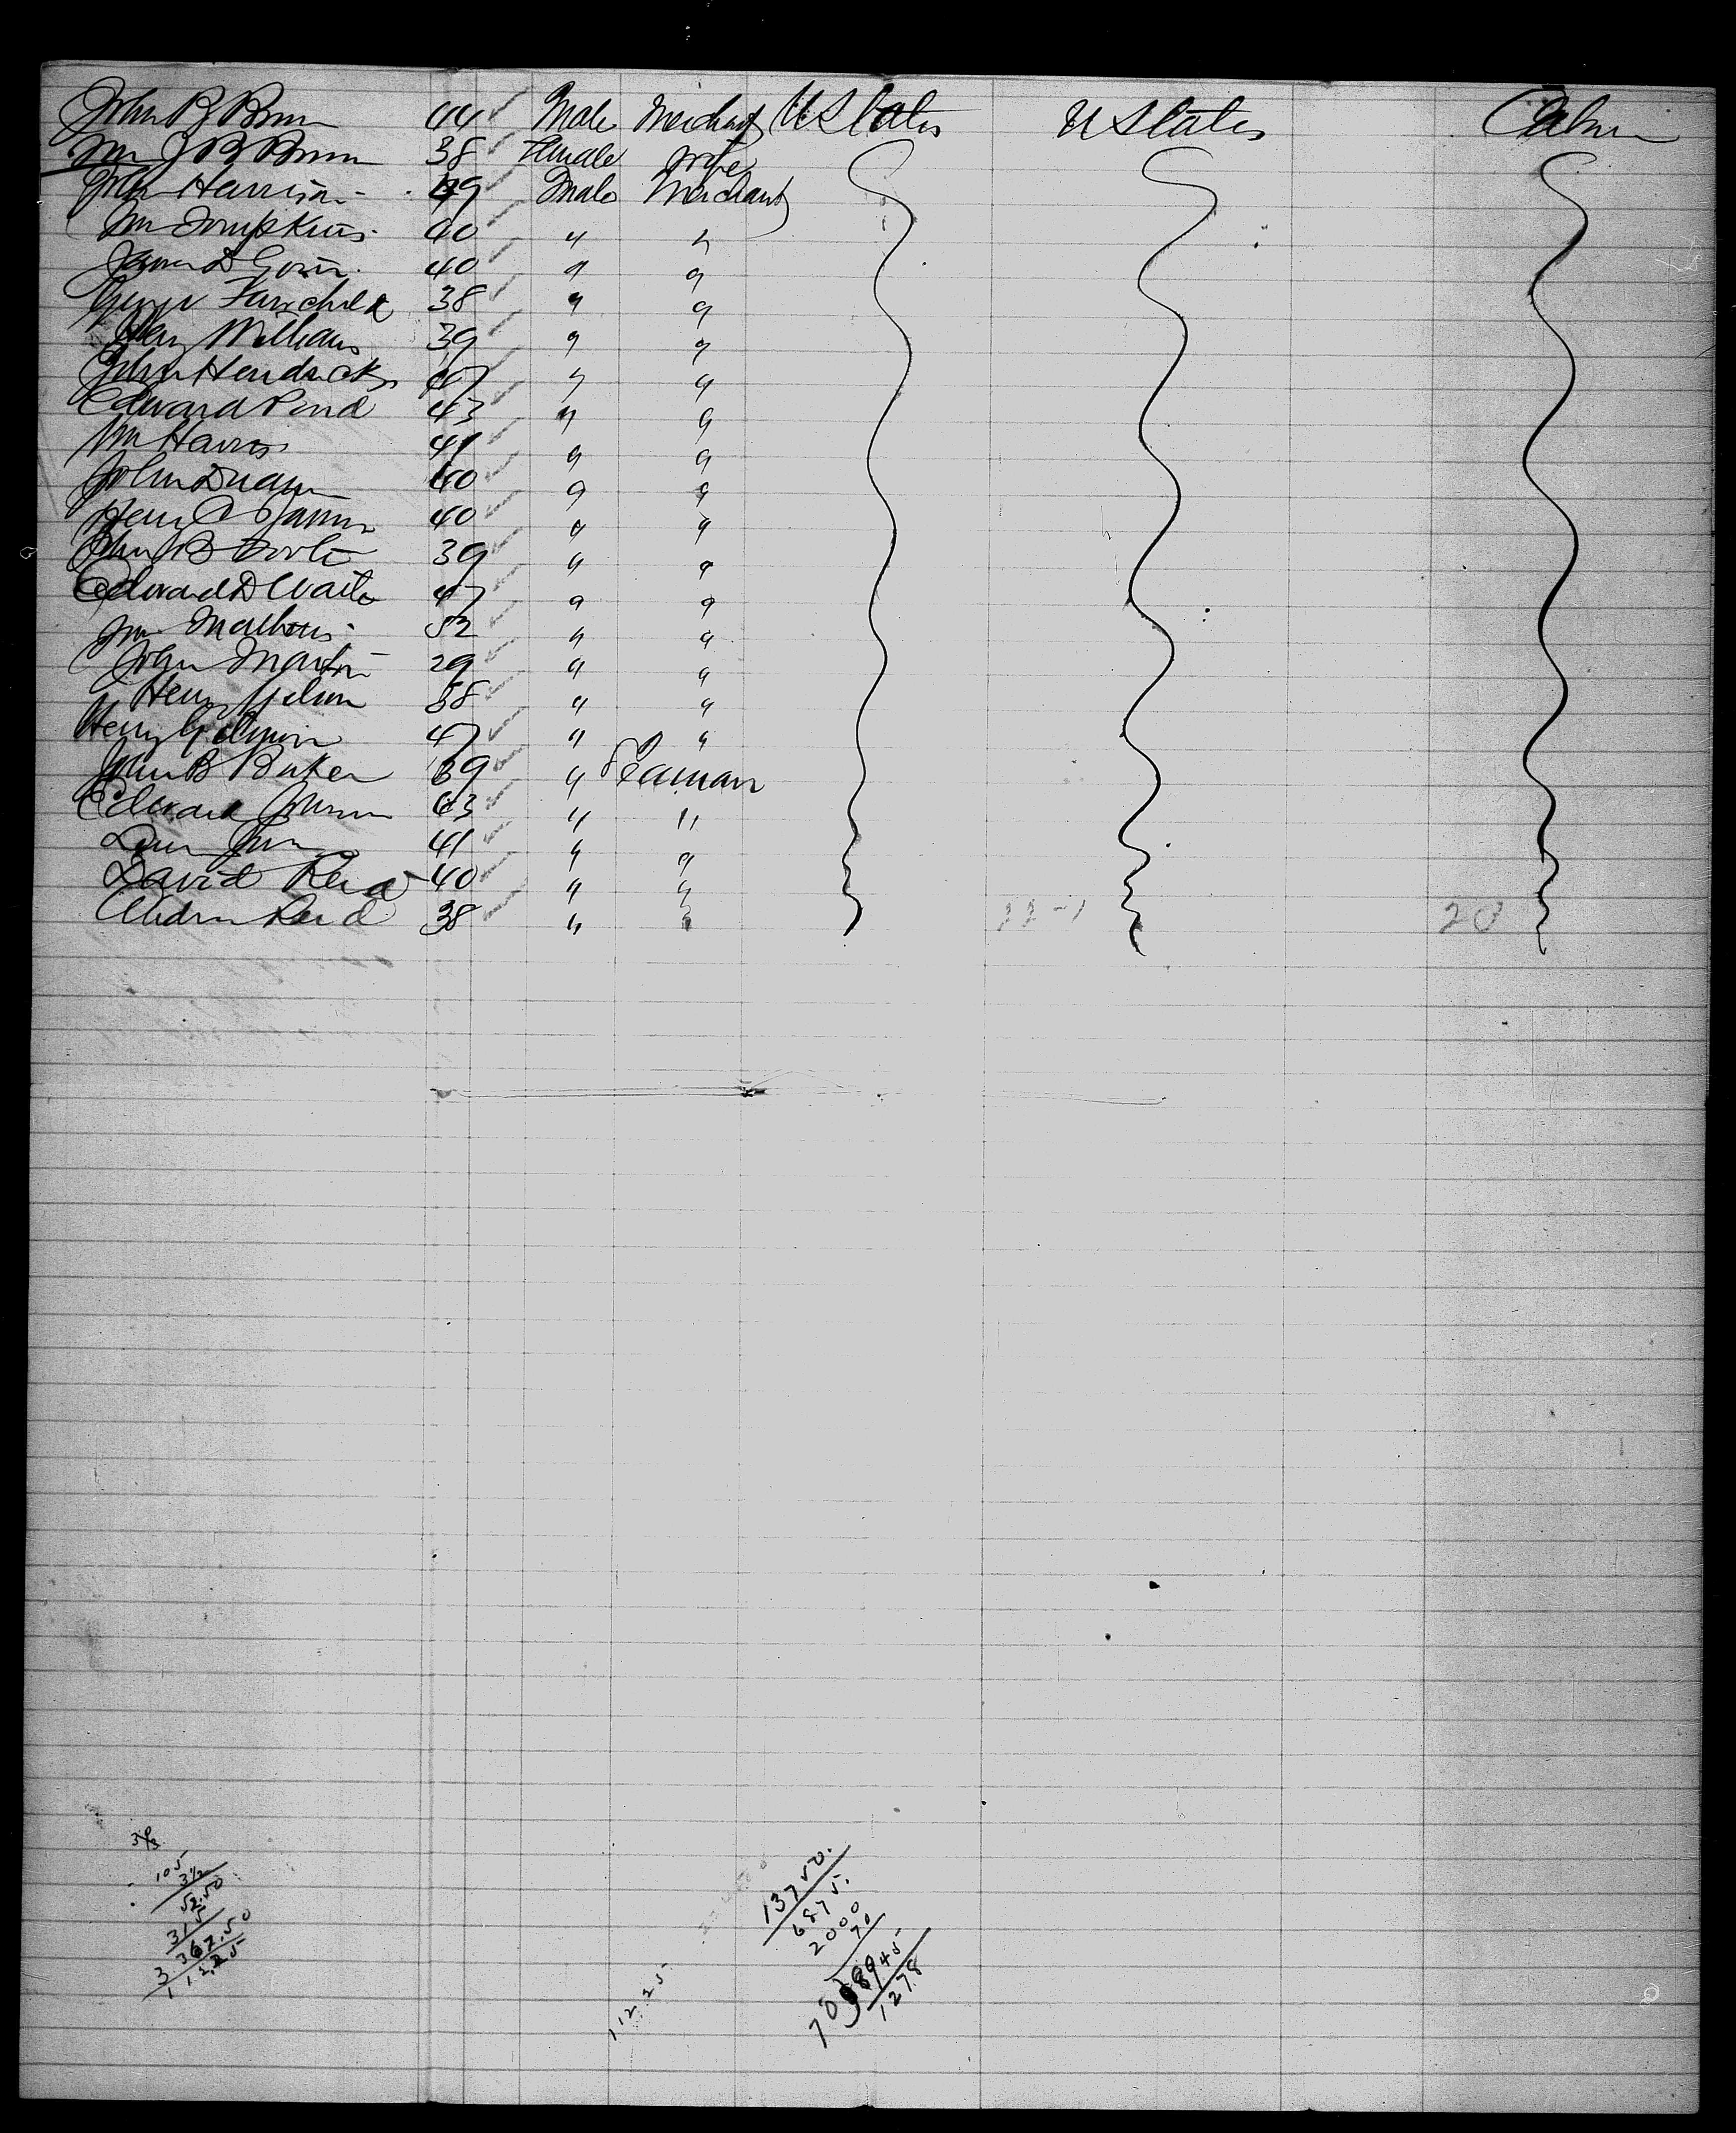 John B Brown 44 Male Merchant U States U States Cabin
Mrs J B Brown 38 Female Wife
John Harrison 49 Male Merchant
Wm Tompkins 40 " "
James D 40 " "
George Fairchild 38 " "
Henry Williams 39 " "
John Hendricks 47 " "
Edward Pond 43 " "
Wm Harris 41 " "
John Duane 40 " "
Henry C 40 " "
John B Foote 39 " "
Edward D Waite 47 " "
Wm Mathews 52 " "
John Martin 29 " "
Henry Wilson 38 " "
Henry 47 " "
John B Baker 39 " Seaman
Edward Johnson 43 " "
41 " "
David Reid 40 " "
Andrew Reid 38 " "
105
3 1/2
52.50
315
3 367.50
122.5
112.25
13750.
6875.
2000
70
70 8945
1278